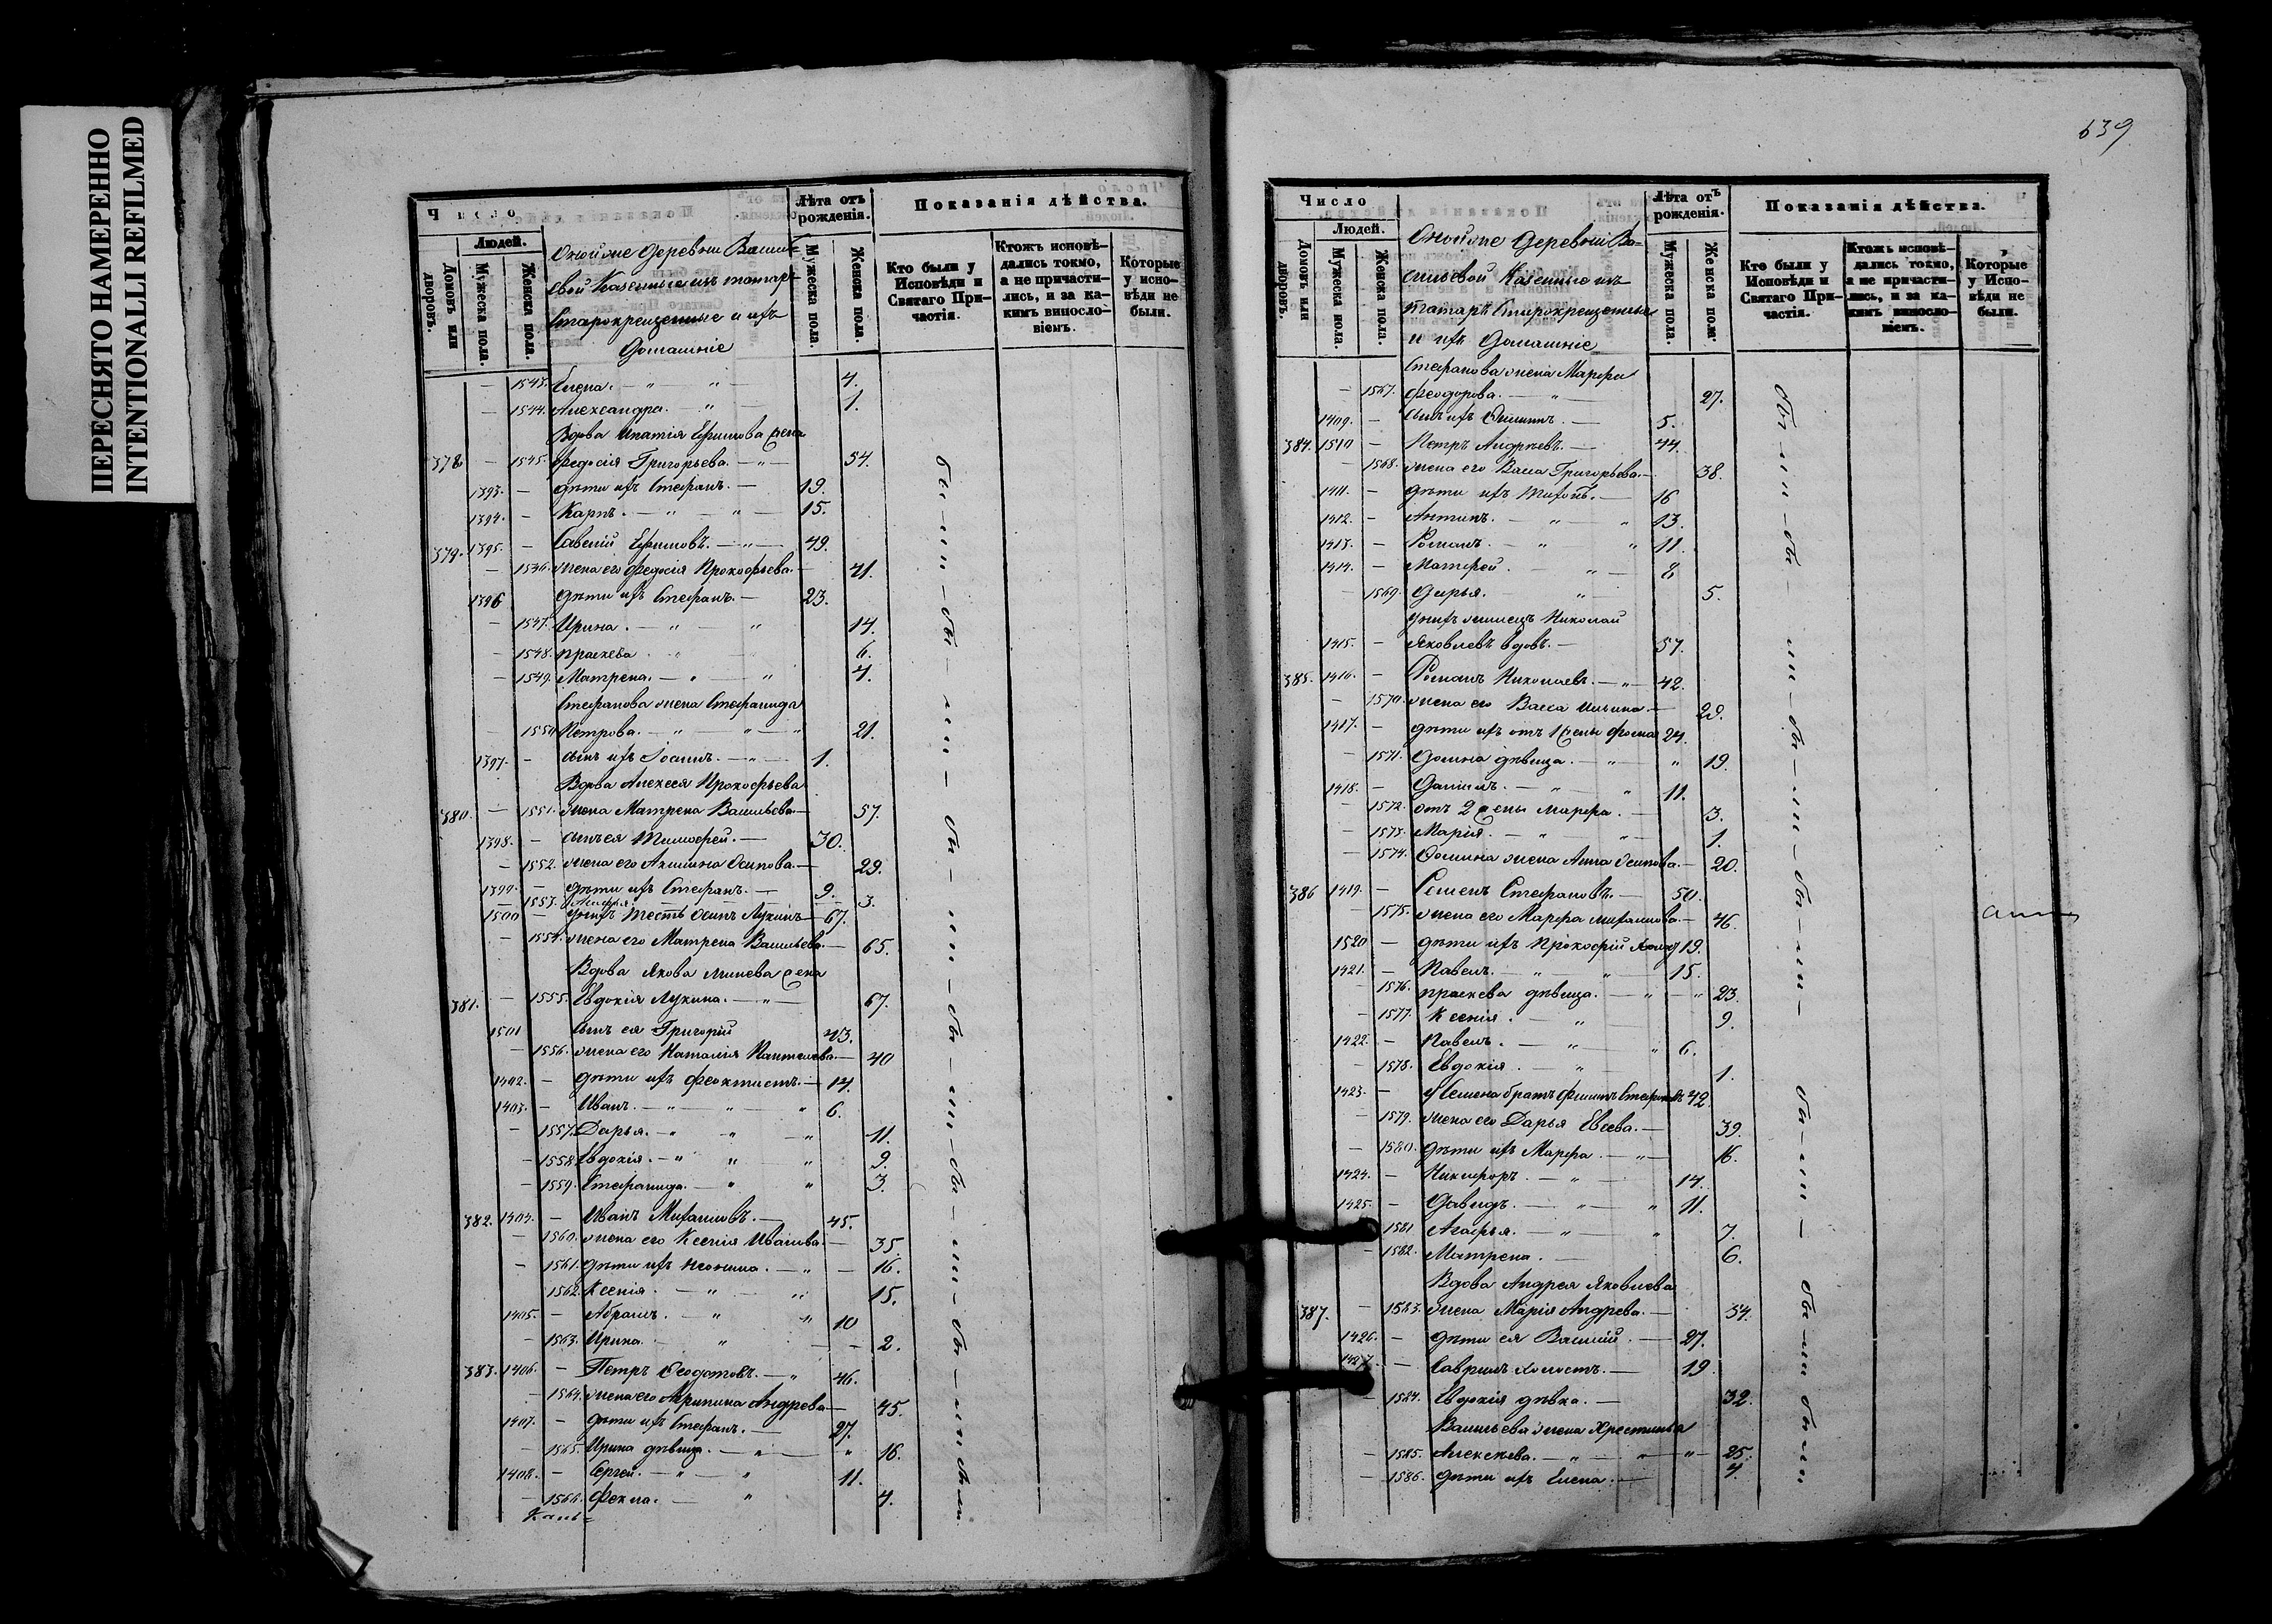 ПЕРЕСНЯТО НАМЕРЕННО
INTENTIONALLI REFILMED
Число
Людей.
Домовъ или дворовъ.
Мужеска пола.
Женска пола.
Оной же деревни Василь
евой Казенные изъ татаръ
Старокрещенные и ихъ
Домашніе
Лѣта отъ рожденія.
Мужеска пола.
Женска пола.
Показанія дѣйства.
Кто были у Исповѣди и Святаго Причастія.
Ктожъ исповѣдались токмо, а не причастились, и за какимъ винословіемъ.
Которые у исповѣди не были.
— 1543. Елена. — " " — 4.
— 1544. Александра. — " — 1.
Вдова Ипатія Ефимова жена
378 — 1545. Федосія Григорьева. — " — 54.
1393. — дѣти ихъ Стефанъ. — 19.
1394. — Карпъ. — " — " — 15.
379. 1395. — Савелій Ефимовъ. — " — 49.
— 1546. жена его Федосія Прокофьева. — 41.
1396 дѣти ихъ Стефанъ. — 23.
— 1547. Ирина. — " — " 14.
— 1548. Праскева " 6.
— 1549. Матрена. — " — " 4.
Стефанова жена Стефанида
1550 Петрова. — " — " — " 21.
1397. — сынъ ихъ Іоаннъ. — " — 1.
Вдова Алексея Прокофьева
380. — 1551. жена Матрена Васильева — 57.
1398. — сынъ ея Тимофей. — 30.
— 1552. жена его Акилина Осипова. — 29.
1399. — дѣти ихъ Стефанъ. — 9.
— 1553. 3.
1500 — Униъ тесть Осипъ Лукинъ — 67.
— 1554. жена его Матрена Васильева. — 65.
Вдова Якова Минева жена
381. — 1555. Евдокія Лукина. — " — 67.
1501 сынъ ея Григорій 43.
— 1556. жена его Наталія Пантелева. — 40
1402. — дѣти ихъ Феоктистъ. — 14.
1403. — Иванъ. — " — " — " 6.
— 1557. Дарья. — " " — " 11.
— 1558. Евдокія. — " " " 9.
— 1559. Стефанида. — " " 3.
382. 1404. — Иванъ Михаиловъ. — 45.
— 1560. жена его Ксенія Иванова. — 35.
— 1561. дѣти ихъ Неонила. — " — 16.
1562. Ксенія. — " — " 15.
1405. — Абрамъ. — " — " 10
— 1563. Ирина. — " — — 2.
383. 1406. — Петръ Федотовъ. — " 46.
— 1564. жена его Агрипина Андрева — 45.
1407. — дѣти ихъ Стефанъ. — 27.
— 1565. Ирина дѣвица. — " — " 16.
1408. — Сергей. — " — " 11.
— 1566. Фекла. — " 4.
639
Число
Людей.
Домовъ или дворовъ.
Мужеска пола.
Женска пола.
Оной же деревни Ва-
сильевой Казенные изъ
татаръ Старокрещенные
и ихъ Домашніе
Лѣта отъ рожденія.
Мужеска пола.
Женска пола.
Показанія дѣйства.
Кто были у Исповѣди и Святаго Причастія.
Ктожъ исповѣдались токмо, а не причастились, и за какимъ винословіемъ.
Которые у Исповѣди не были.
Стефанова жена Марфа
— 1567. Феодорова. — " — 27.
1409. — сынъ ихъ Филипъ. — 5.
384. 1510 — Петръ Андрѣевъ. — 44.
— 1568. жена его Васса Григорьева. — 38.
1411. — дѣти ихъ — 16
1412. — Антипъ. — " — " 13.
1413. — Романъ. — " " 11.
1414. — Матфей. — " — 8
— 1569. Дарья. — " — 5.
Николай
1415. — Яковлевъ вдовъ. — 57.
385. 1416. — Романъ Николаевъ. — " — 42.
— 1570. жена его Васса Ильина — 29.
1417. — дѣти ихъ отъ 1 жены Фома 24.
— 1571. Домна дѣвица. — " — " 19.
1418. — Даніилъ. — " — " 11.
— 1572. отъ 2 жены Марфа. — 3.
— 1573. Марія. — " " — 1.
— 1574. Фомина жена Анна Осипова. — 20.
386 1419. — Семенъ Стефановъ. — 50.
— 1575. жена его Марфа Михаилова. — 46.
1520 — дѣти ихъ Прокофій 19.
1421. — Павелъ. — " — " 15.
— 1576. Праскева дѣвица. — " — " 23.
— 1577. Ксенія. — " 9.
1422. — Павелъ. — " — " 6.
— 1578. Евдокія. — " 1.
1423. — У Семена братъ Филипъ Стефановъ 42.
— 1579. жена его Дарья Евсева. — 39.
— 1580. дѣти ихъ Марфа. — " — 16.
1424. — Никифоръ. — " — 14.
1425. — Давидъ. — " — " 11.
1581 Агафья. — " — " 7.
— 1582. Матрена. — 6.
Вдова Андрея Яковлева
387. — 1583. жена Марія Андрева. — 54.
1426. — дѣти ея Василій. — 27.
1427. — Гаврилъ холостъ. — 19
— 1584. Евдокія дѣвка. — 32.
Васильева жена Хрестинья
— 1585. Алексѣева. — " — " — " 25.
— 1586. дѣти ихъ Елена. — 4.